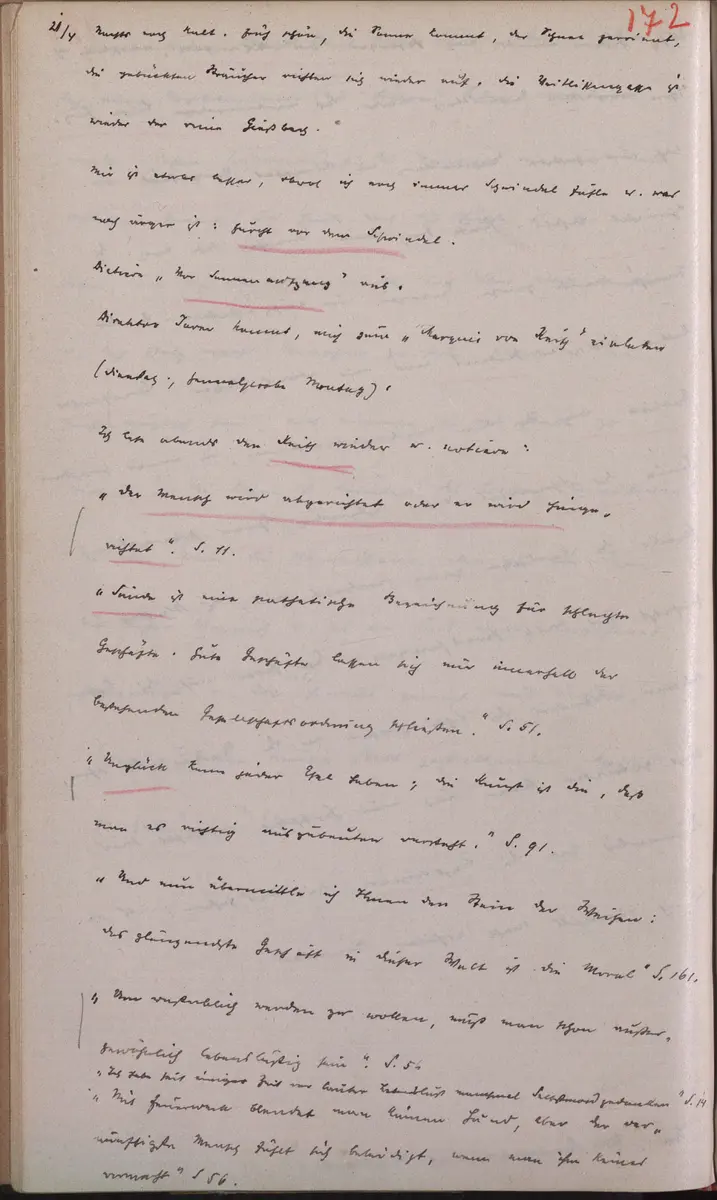 172
28/4 Nachts noch kalt. Früh schön, die Sonne kommt, der Schnee zerrinnt,
die gebückten Sträucher richten sich wieder auf, die Veitlissengasse ist
wieder der reine Gießbach.
Mir ist etwas besser, obwol ich noch immer Schwindel fühle u. was
noch ärger ist: Furcht vor dem Schwindel.
Dictiere „Vor Sonnenaufgang" aus.
Direktor Jarno kommt, mich zum „Marquis von Keith" einladen
(Dienstag, Generalprobe Montag).
Ich lese abends den Keith wieder u. notiere:
„Der Mensch wird abgerichtet oder er wird hinge-
richtet". S. 11.
„Sünde ist eine mythologische Bezeichnung für schlechte
Geschäfte. Gute Geschäfte lassen sich nur innerhalb der
bestehenden Gesellschaftsordnung schließen." S. 51.
„Unglück kann jeder Esel haben; die Kunst ist die, daß
man es richtig auszubeuten versteht." S. 91.
„Und nun übermittle ich Ihnen den Stein der Weisen:
das glänzendste Geschäft in dieser Welt ist die Moral" S. 161.
„Um unsterblich werden zu wollen, muß man schon außer-
gewöhnlich lebenslustig sein". S. 56
„Ich habe seit einiger Zeit vor lauter Lebenslust manchmal Selbstmordgedanken" S. 14
„Mit Feuerwerk blendet man keinen Hund, aber der ver-
nünftigste Mensch fühlt sich beleidigt, wenn man ihm keines
vormacht" S 56.